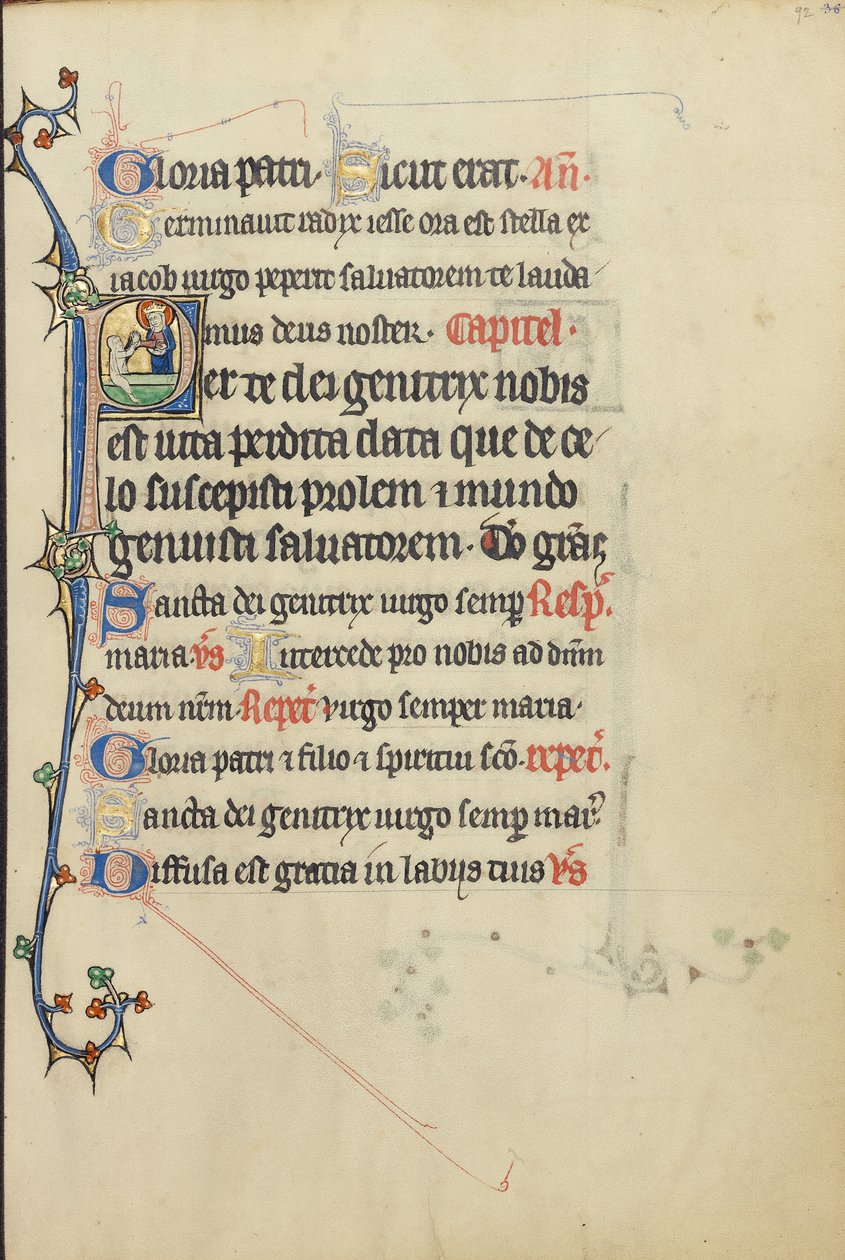 92 36
Gloria patri. Sicut erat. An̄.
Germinauit radix iesse orta est stella ex
iacob uirgo peperit saluatorem te lauda
mus deus noster. Capitel.
Per te dei genitrix nobis
est uita perdita data que de ce
lo suscepisti prolem ⁊ mundo
genuisti saluatorem. Do grās
Sancta dei genitrix uirgo semꝑ Resp̄.
maria. v̄s Intercede pro nobis ad dn̄m
deum nr̄m. Repet̄. virgo semper maria.
Gloria patri ⁊ filio ⁊ spiritui scō. repet̄.
Sancta dei genitrix uirgo semꝑ mar̄.
Diffusa est gratia in labijs tuis v̄s